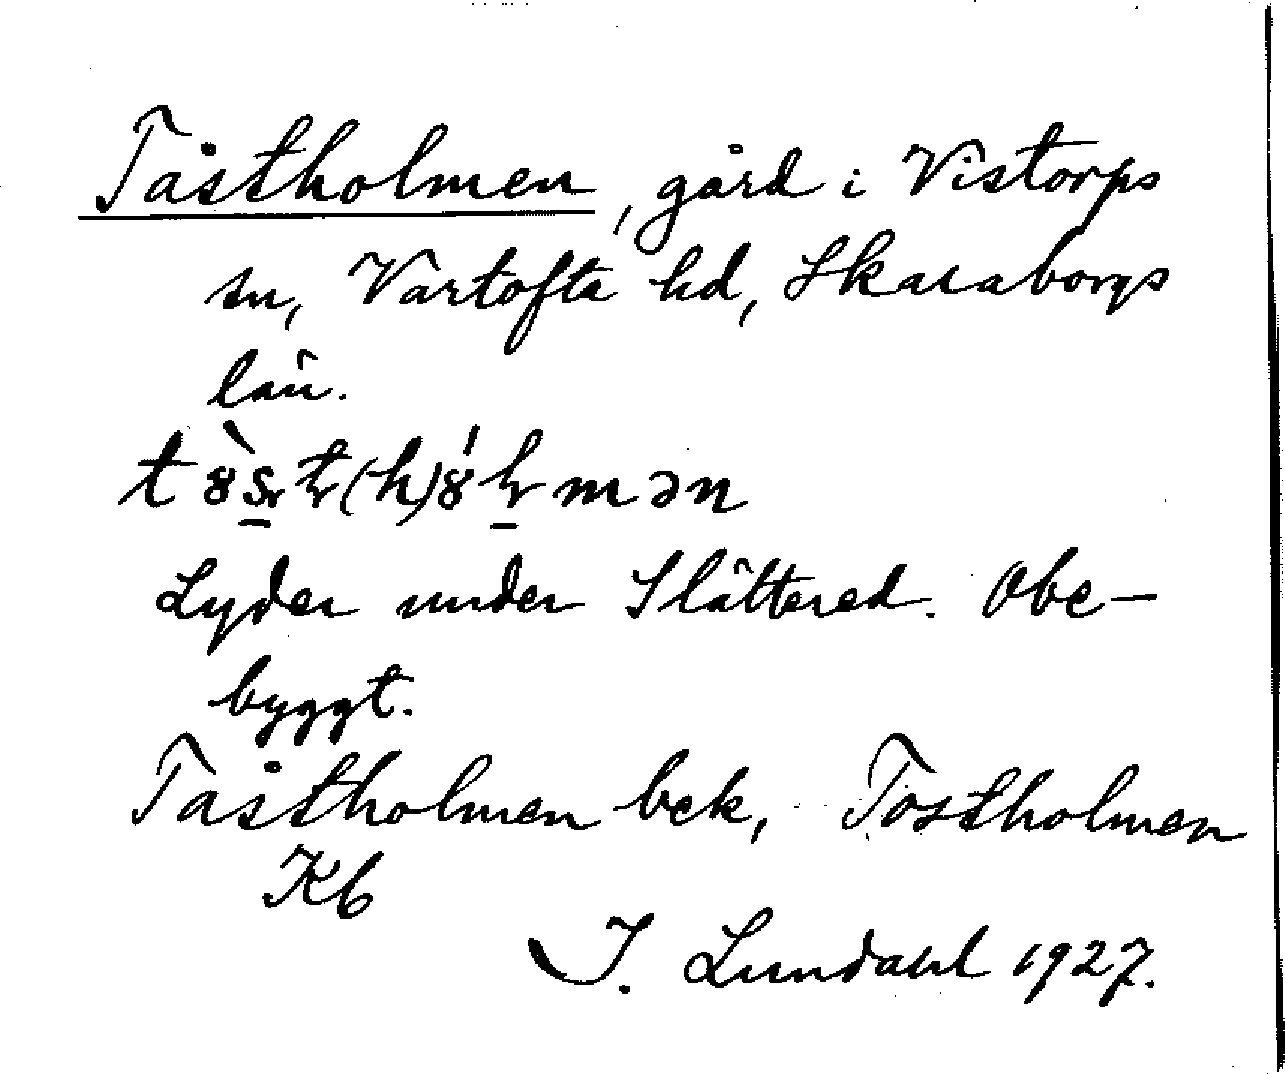 Tåstholmen, gård i Vistorps
sn, Vartofta hd, Skaraborgs
län.
Lyder under Slättered. Obe-
byggt.
Tåstholmen bek, Tostholmen
Kb
I. Lundahl 1927.